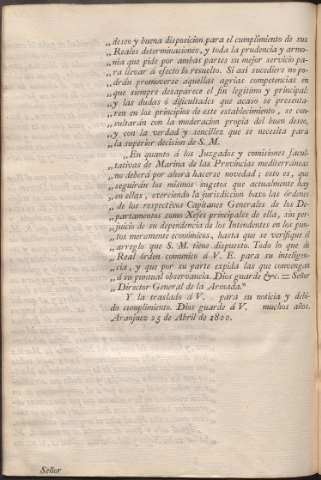 „deseo y buena disposicion para el cumplimiento de sus
„Reales determinaciones, y toda la prudencia y armo-
„nia que pide por ambas partes su mejor servicio pa-
„ra llevar á efecto lo resuelto. Si así sucediere no po-
„drán promoverse aquellas agrias competencias en
„que siempre desaparece el fin legítimo y principal:
„y las dudas ó dificultades que acaso se presenta-
„ren en los principios de este establecimiento, se con-
„sultarán con la moderacion propia del buen deseo,
„y con la verdad y sencillez que se necesita para
„la superior decision de S. M.
„En quanto á los Juzgados y comisiones facul-
„tativas de Marina de las Provincias mediterraneas
„no deberá por ahora hacerse novedad; esto es, que
„seguirán los mismos sugetos que actualmente hay
„en ellas, exerciendo la jurisdicion baxo las órdenes
„de los respectivos Capitanes Generales de los De-
„partamentos como Xefes principales de ella, sin per-
„juicio de su dependencia de los Intendentes en los pun-
„tos meramente económicos, hasta que se verifique el
„arreglo que S. M. tiene dispuesto. Todo lo que de
„Real órden comunico á V. E. para su inteligen-
„cia, y que por su parte expida las que convengan
„á su puntual observancia. Dios guarde &c. = Señor
„Director General de la Armada."
Y lo traslado á V. para su noticia y debi-
do cumplimiento. Dios guarde á V. muchos años.
Aranjuez 25 de Abril de 1800.
Señor